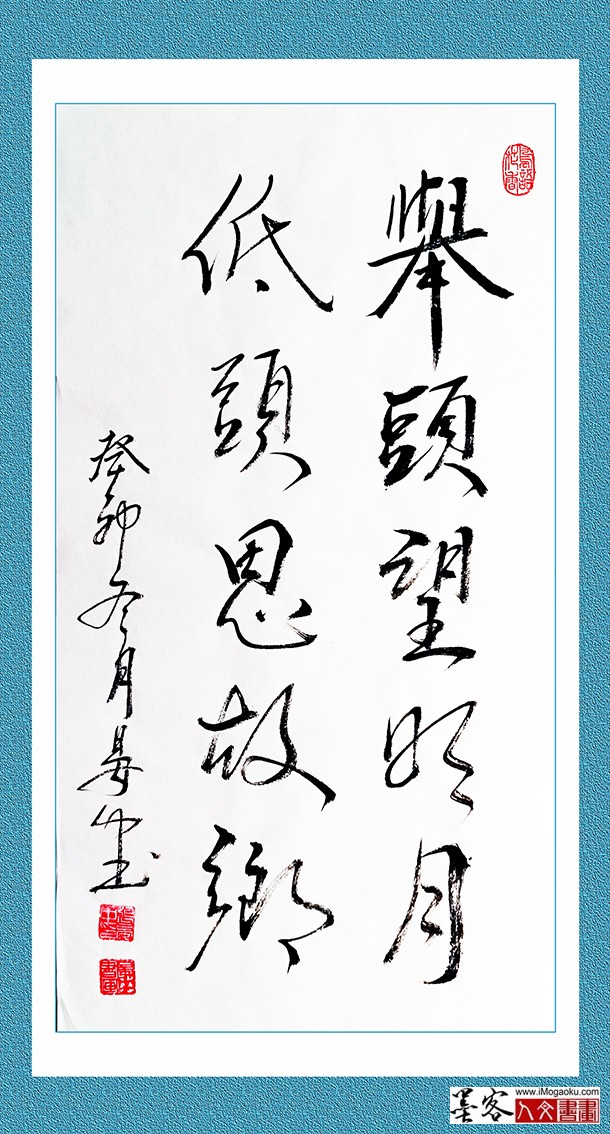 舉頭望明月
低頭思故鄉
癸卯冬月晏
墨客
www.iMogaoku.com
人文書畫